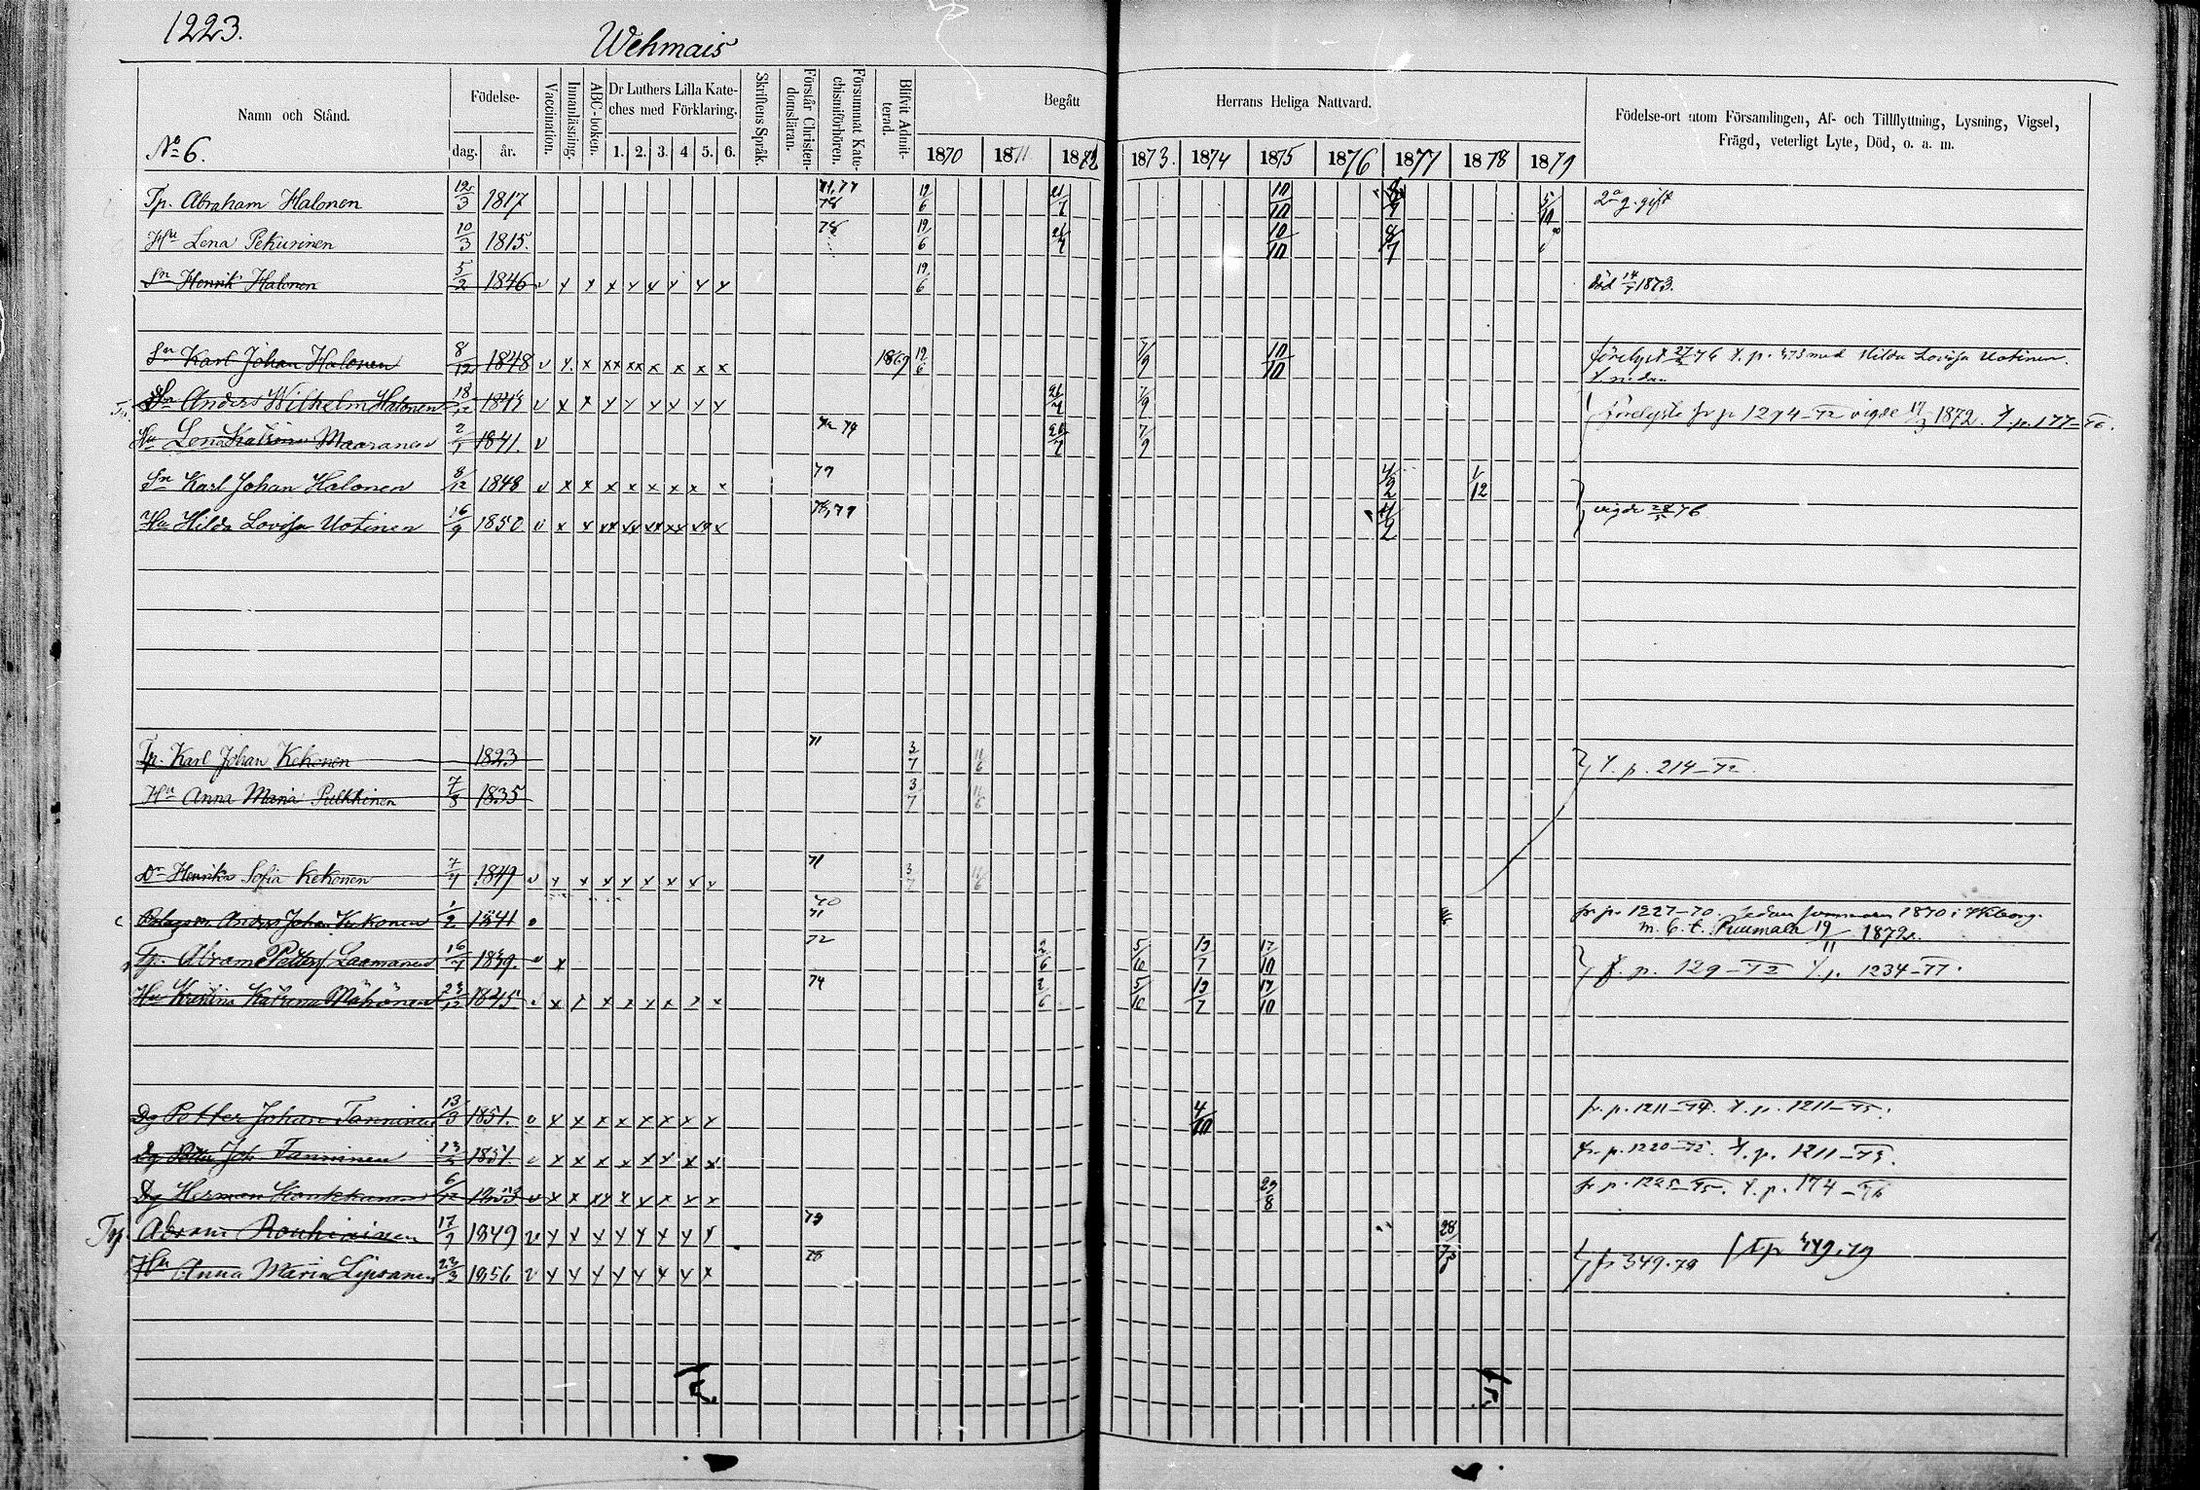 1223.
Wehmais
Namn och Stånd.
Födelse-
dag. år.
Vaccination.
Innanläsning.
ABC-boken.
Dr Luthers Lilla Kate-
ches med Förklaring.
1. 2. 3. 4 5. 6.
Skriftens Språk.
Förstår Christen-
domsläran.
Försummat Kate-
chismiförhören.
Blifvit Admit-
terad.
Begått Herrans Heliga Nattvard.
1870 1871 1872 1873. 1874 1875 1876 1877 1878 1879
Födelse-ort utom Församlingen, Af- och Tillflyttning, Lysning, Vigsel,
Frägd, veterligt Lyte, Död, o. a. m.
No 6.
Tp. Abraham Halonen 12/3 1817 19/6 21/7 10/10 5/10 2a g. gift
Hu Lena Pekurinen 10/3 1815. 78 19/6 21/7 10/10 8/7
Sn Henrik Halonen 5/2 1846 v x x x x x x x x 19/6 död 14/7 1873.
Sn Karl Johan Halonen 8/12 1848 v x x xx xx x x x x 1869 19/6 7/9 10/10 förelyst 76 t. p. 473 med Hilda Lovisa Uotinen.
t nedan
Sn Anders Wilhelm Halonen 18/12 v x x x x x x x x 21/7 7/9 förelysta fr p 1294-72 vigde 1872. t. p. 177-76.
Hu Lena Katrina Maaranen 1841. v 7/9
Sn Karl Johan Halonen 8/12 1848 v x x x x x x x x 79 4/2 1/12
Hu Hilda Lovisa Uotinen 16/9 1850 v x x xx xx xx xx xx x 78,79 4/2 vigde 28/5 76
Tp. Karl Johan Kekonen 1823 71 3/7 11/6 t. p. 214-72
Hu Anna Maria Pulkkinen 1835 3/7 11/6
Dr Henrika Sofia Kekonen 7/4 1849 v x x x x x x x x 71 3/7 11/6
Anders Johan Kekonen 1/2 1841 70 71 fr. p. 1227-70. sedan sommaren 1870 i Wiborg.
m. b. t. Puumala 19/11 1872.
Tp. Abram Petter Laamanen 16/7 1839. v x 72 2/6 5/10 12/7 17/10 f. p. 129-72 t. p. 1234-77.
Hu Kristina Katrina 23/12 1845. v x x x x x x x x 74 2/6 5/10 12/7 17/10
Dg Petter Johan Tanninen 13/3 1851. v x x x x x x x x 4/10 fr. p. 1211-74. t. p. 1211-75.
Dg Petter Joh Tanninen 13/3 1851. v x x x x x x x x fr. p. 1220-72. t. p. 1211-73.
Dg Herman 6/12 1853 v x x xx x x x x x 29/8 fr p. 1225-75. t. p. 174-76
Tp. Abram Rouhiainen 17/9 1849 v x x x x x x x x 79 28/7
Hu Anna Maria Lipsanen 23/3 1856 v x x x x x x x x 78 fr 349.78 t p 449.79